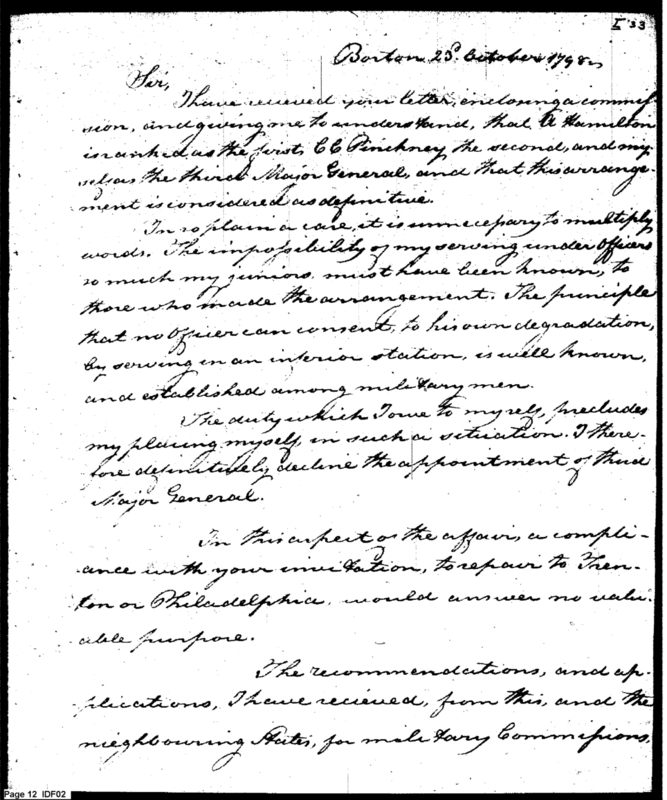 I 33
Boston 23d. October 1798
Sir,
I have recieved your letter, enclosing a commis-
sion, and giving me to understand, that A Hamilton
is ranked as the first, CC Pinckney the second, and my
self as the third Major General, and that this arrange-
ment is considered as definitive.
In so plain a case, it is unnecessary to multiply
words. The impossibility of my serving under officers
so much my juniors, must have been known, to
those who made the arrangement. The principle
that no Officer can consent, to his own degradation,
by serving in an inferior station, is well known,
and established among military men.
The duty which I owe to myself, precludes
my placing myself, in such a situation. I there-
fore definitively decline the appointment of third
Major General.
In this aspect of the affair, a compli-
ance with your invitation, to repair to Tren-
ton or Philadelphia, would answer no valu-
able purpose.
The recommendations, and ap-
plications, I have recieved, from this, and the
nieghbouring States, for military Commissions,
Page 12 IDF02